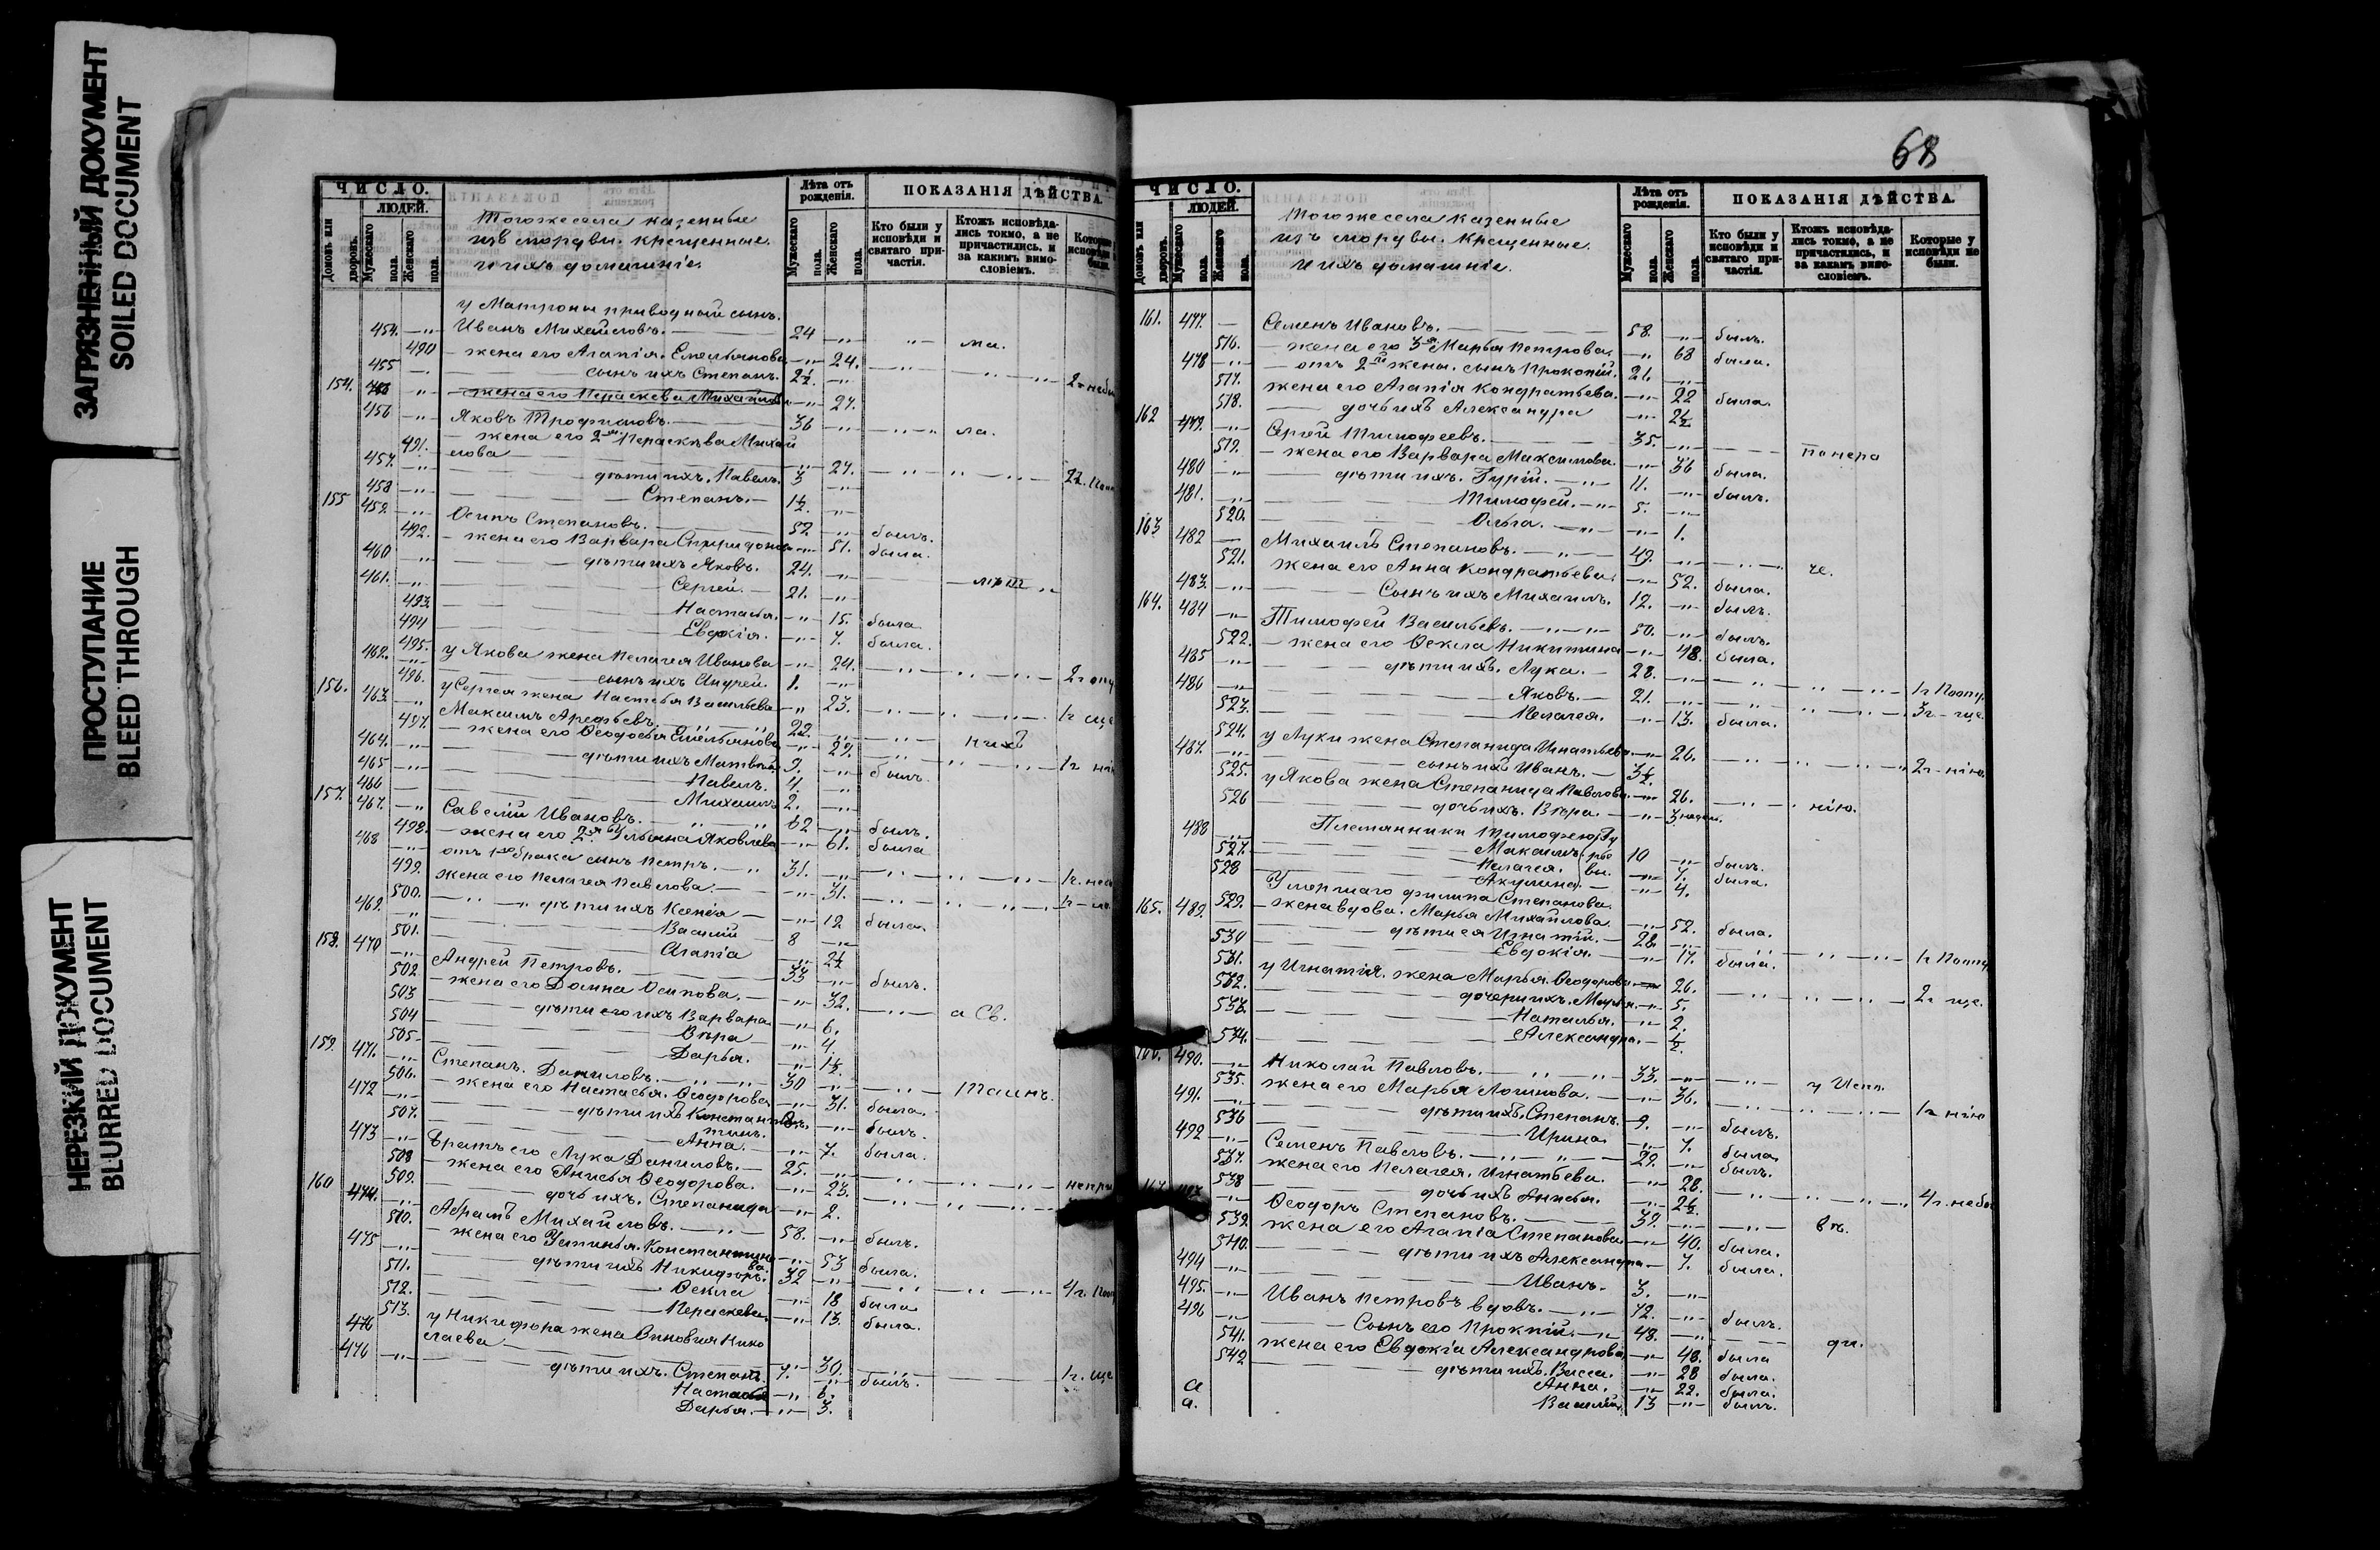 ЗАГРЯЗНЕННЫЙ ДОКУМЕНТ
SOILED DOCUMENT
ПРОСТУПАНИЕ
BLEED THROUGH
НЕРЕЗКИЙ ДОКУМЕНТ
BLURRED DOCUMENT
ЧИСЛО.
ЛЮДЕЙ.
Домовъ или дворовъ.
Мужескаго пола.
Женскаго пола.
Тогоже села казенные
изъ мордвы. крещенные.
и ихъ домашніе.
Лѣта отъ рожденія.
Мужескаго пола.
Женскаго пола.
ПОКАЗАНІЯ ДѢЙСТВА.
Кто были у исповѣди и святаго причастія.
Ктожъ исповѣдались токмо, а не причастились, и за какимъ вино-словіемъ.
Которые у исповѣди не были.
у Матроны приводной сынъ.
454. Иванъ Михайловъ. 24
490 жена его Агапія. Емельянова 24.
455 сынъ ихъ Степанъ. 2½.
154. жена его Пераскева Михайлова 27.
456 Яковъ Трофимовъ. 36
491. жена его 2я Пераскева Михай
лова 27.
457. дѣти ихъ. Павелъ. 3
458 Степанъ. 1½.
155 459. Осипъ Степановъ. 52 былъ.
492. жена его Варвара Спиридонова 51. была.
460 дѣти ихъ Яковъ. 24.
461. Сергей. 21.
493. Настасья. 15. была
494 Евдокія. 7. была.
495. у Якова жена Пелагея Иванова 24.
462. сынъ ихъ Андрей. 1.
496. у Сергея жена Настасья Васильева 23.
156. 463. Максимъ Арефьевъ. 22.
497. жена его Ѳеодосья Емельянова 29.
464. дѣти ихъ Матвѣй 9. былъ.
465 Павелъ. 4.
466 Михаилъ 2.
157. 467. Савелій Ивановъ. 62 былъ.
498. жена его 2я Ульяна Яковлева 61. была
468 отъ 1го брака сынъ Петръ. 31.
499. жена его Пелагея Павлова. 31.
500. дѣти ихъ Ксенія 12 была.
469. Василій 8
501. Агапія 2½
158. 470 Андрей Петровъ. 33 былъ.
502 жена его Домна Осипова. 32.
503 дѣти его ихъ Варвара 6.
504 Вѣра 4.
505 Дарья. 1½.
159. 471. Степанъ. Даниловъ. 30
506. жена его Настасья. Ѳеодорова 31. была.
472 дѣти ихъ Констан
тинъ. былъ.
507. Анна. 7. была.
473 Братъ его Лука Даниловъ. 25.
508 жена его Анисья Ѳеодорова. 23.
509. дочь ихъ. Степанида 2.
160 474. Абрамъ Михайловъ. 58. былъ.
510. жена его Устинья. Константино
ва. 53 была.
475 дѣти ихъ Никифоръ. 32
511. Ѳекла 18 была
512. Пераскева. 13. была.
513. у Никифора жена Зиновия Нико
лаева 30.
476 дѣти ихъ. Степанъ. 7. былъ.
Настасья 6.
Дарья. 3.
68
ЧИСЛО.
ЛЮДЕЙ.
Домовъ или дворовъ.
Мужескаго пола.
Женскаго пола.
Тогоже села казенные
изъ мордвы. крещенные.
и ихъ домашніе.
Лѣта отъ рожденія.
Мужескаго пола.
Женскаго пола.
ПОКАЗАНІЯ ДѢЙСТВА.
Кто были у исповѣди и святаго причастія.
Ктожъ исповѣдались токмо, а не причастились, и за какимъ вино-словіемъ.
Которые у исповѣди не были.
161. 477. Семенъ Ивановъ. 58. былъ.
516. жена его 3я Марья Петрова. 68 была.
478 отъ 2й жены. сынъ Прокопій. 21.
517. жена его Агапія Кондратьева. 22 была.
518. дочь ихъ Александра 2½
162 479. Сергей Тимофеевъ. 35.
519. жена его Варвара Максимова. 36 была.
480 дѣти ихъ. Гурій. 11. былъ.
481. Тимофей. 5.
520. Ольга. 1.
163 482 Михаилъ Степановъ. 49. че.
521. жена его Анна Кондратьева. 52. была.
483. Сынъ ихъ Михаилъ. 12. былъ.
164. 484 Тимофей Васильевъ. 50. былъ.
522. жена его Ѳекла Никитина 48. была.
485 дѣти ихъ. Лука. 28.
486 Яковъ. 21.
523. Пелагея. 13. была.
524. у Луки жена Степанида Игнатьева 26.
487. сынъ ихъ Иванъ. 3½.
525. у Якова жена Степанида Павлова. 26. нію.
526 дочь ихъ. Вѣра. 3 недѣл.
Племянники Тимофею
488 Максимъ 10 былъ.
527. Пелагея. 7. была.
528 Акулина. 4.
Умершаго Филипа Степанова.
165. 529. жена вдова. Марья Михайлова 52. была.
489. дѣти ея Игнатій. 28.
530 Евдокія. 17. была.
531. у Игнатія. жена Марья. Ѳеодорова 26.
532. дочери ихъ. Марья. 5.
533. Наталья. 2.
534. Александра. ½.
166. 490. Николай Павловъ. 33.
535. жена его Марья Логинова. 36.
491. дѣти ихъ. Степанъ. 9. былъ.
536 Ирина. 7. была.
492 Семенъ Павловъ. 29. былъ.
537. жена его Пелагея. Игнатьева. 28.
538 дочь ихъ Анисья. 2½.
Ѳеодоръ Степановъ. 39.
539. жена его Агапіа Степанова 40. была.
540. дѣти ихъ Александра 7. была.
494 Иванъ. 3.
495. Иванъ Петровъ вдовъ. 72. былъ.
496 Сынъ его Прокпій. 48.
541. жена его Евдокіа Александрова 48. была
542 дѣти ихъ. Васса. 28 была.
Анна. 22. была.
а. Василій 13 былъ.